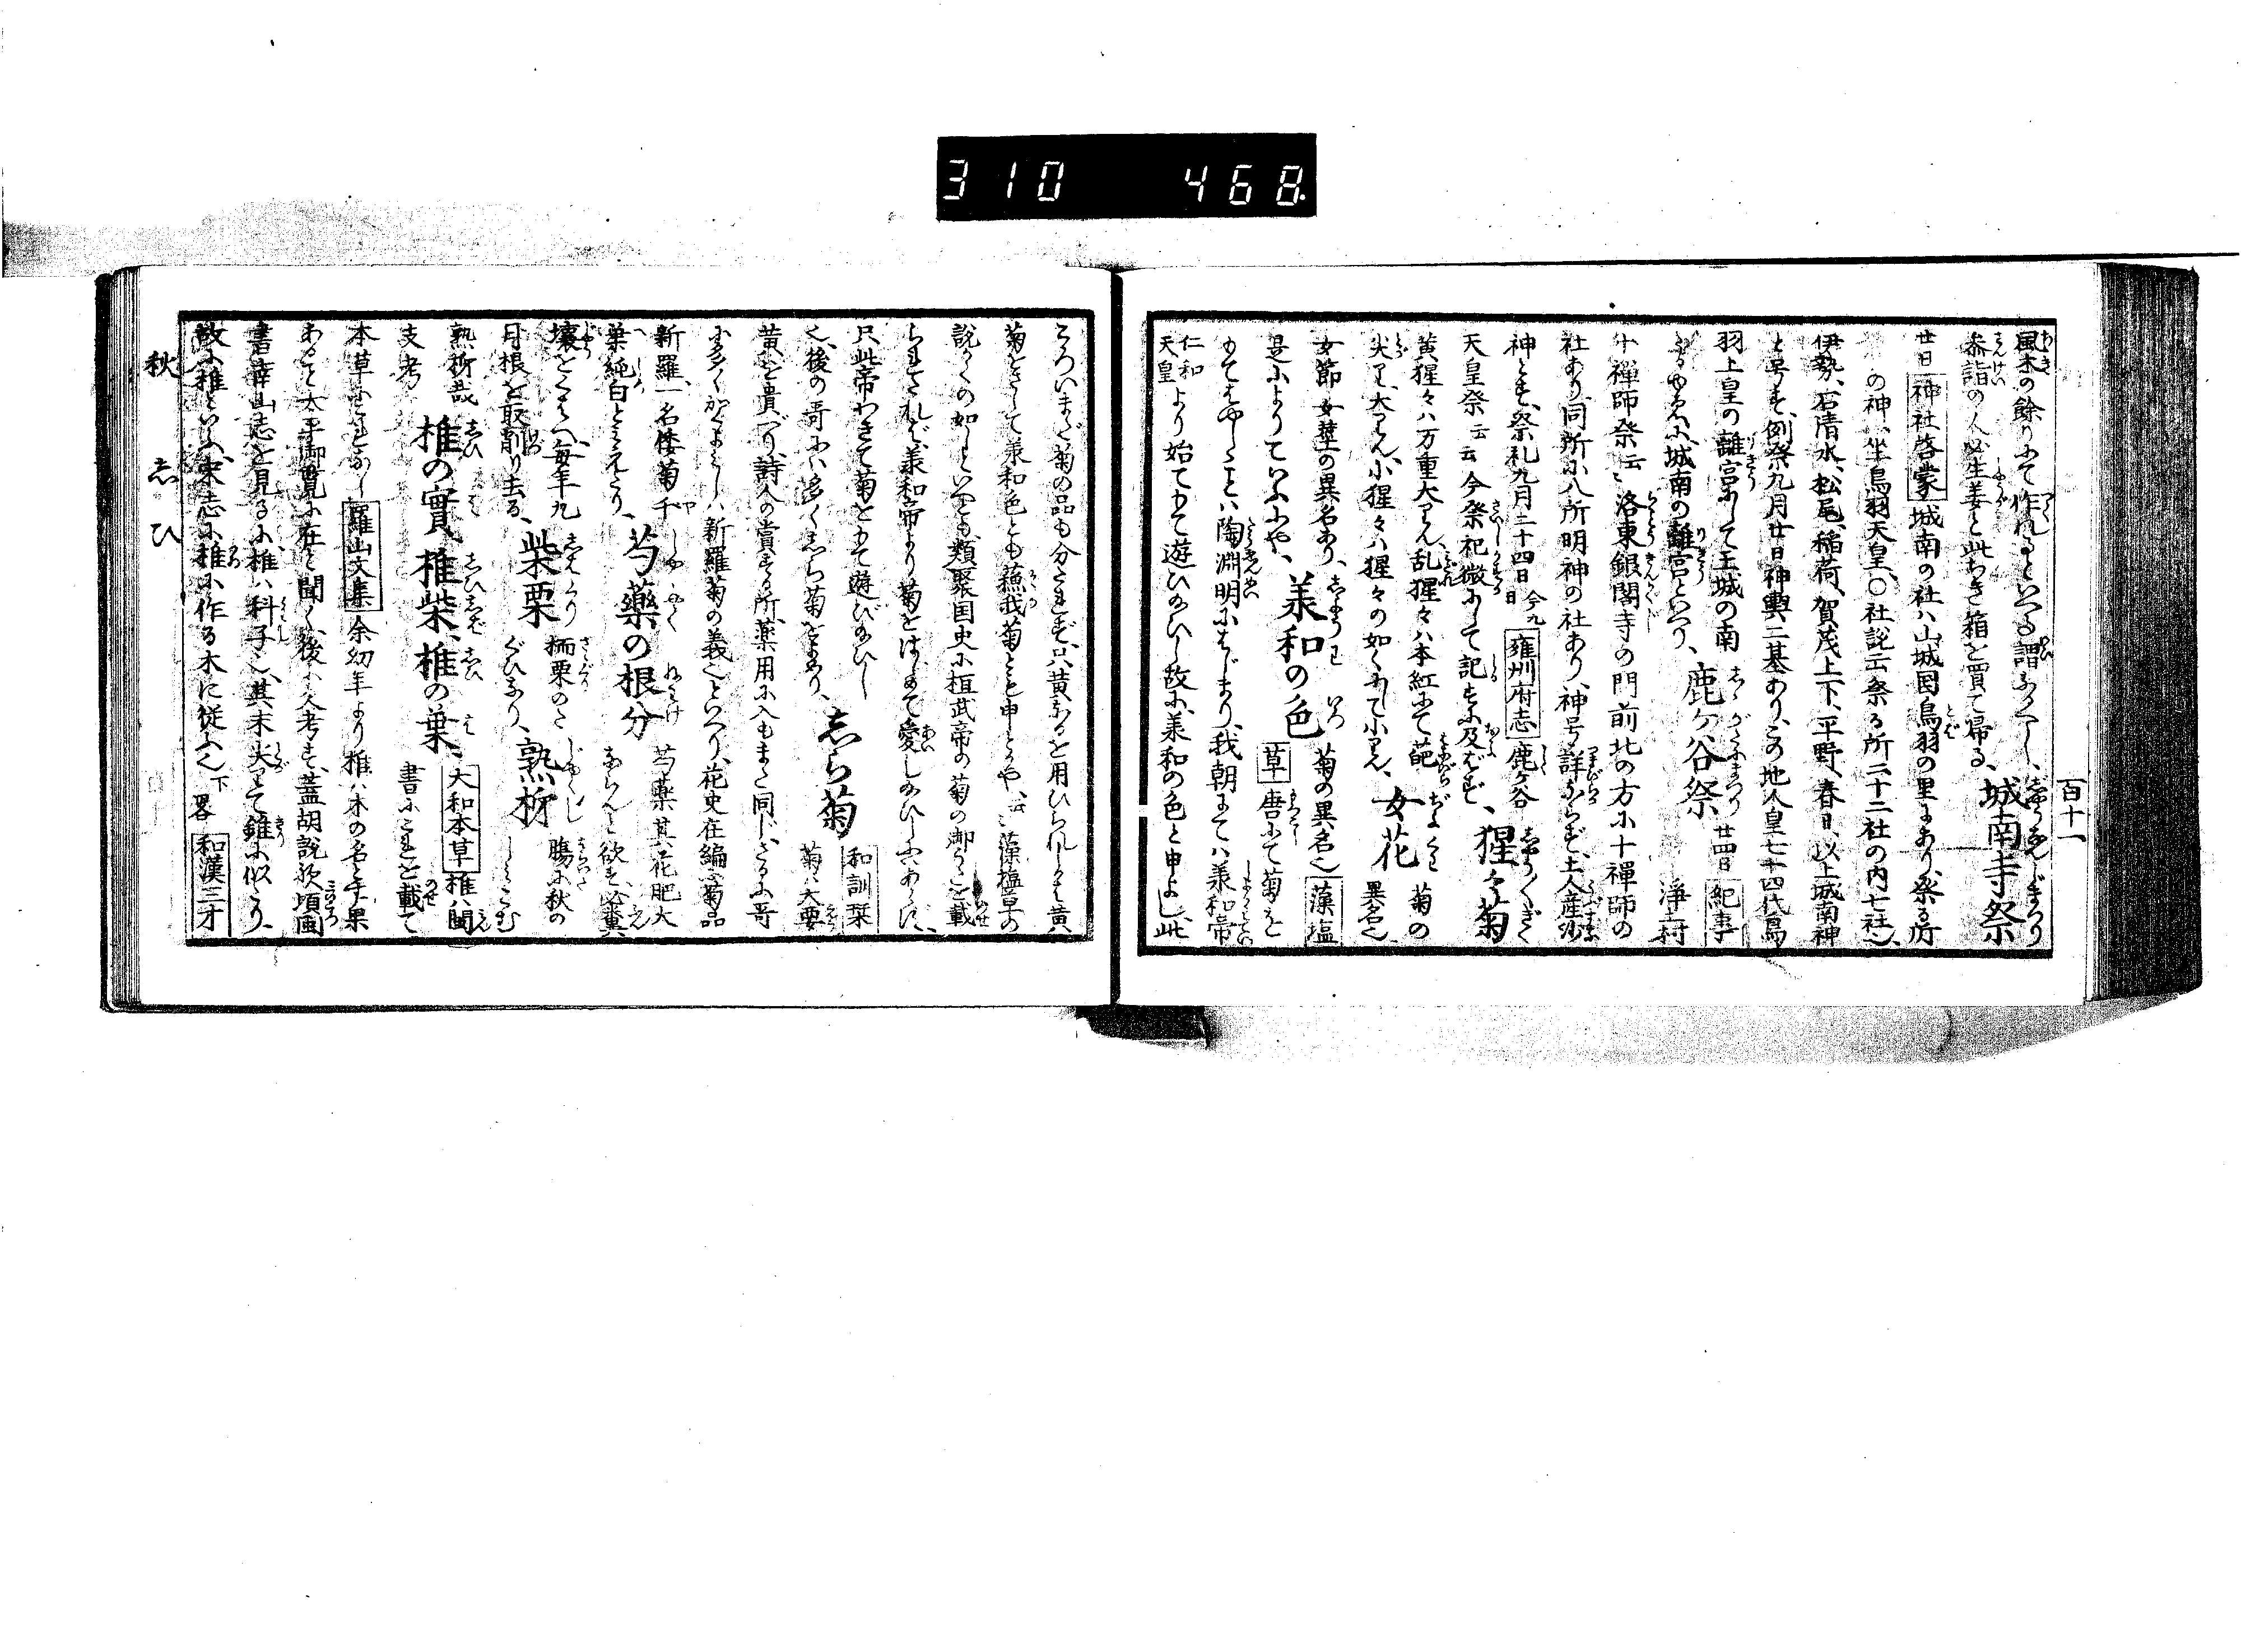 310 468
百十一
風木の餘りにて作れるといへる謂なるべし、城南寺祭
参詣の人必生姜と此ちぎ箱を買て帰る、
廿日 神社啓蒙 城南の社ハ山城国鳥羽の里にあり、祭る所
の神、坐鳥羽天皇、○社説云祭る所二十二社の内七社也、
伊勢、石清水、松尾、稲荷、賀茂上下、平野、春日、以上城南神
と号す、例祭九月廿日神輿二基あり、この地人皇七十四代鳥
羽上皇の離宮にして王城の南
なるゆゑに、城南の離宮といへり、鹿ヶ谷祭 廿四日 紀事 浄土村
十禅師祭云云 洛東銀閣寺の門前北の方に十禅師の
社あり、同所に八所明神の社あり、神号詳ならず、土人産沙
神とす、祭礼九月二十四日 今九日 雍州府志 鹿ヶ谷
天皇祭云云 今祭祀微にして記すに及ばず、猩々菊
黄猩々ハ万重大りん、乱猩々ハ本紅にて葩
尖り、大りん、小猩々ハ猩々の如くにて小りん、女花 菊の異名也
女節 女莖の異名あり、
是によりていふにや、 承和の色 菊の異名也 藻塩
草 唐にて菊を
もてはやしゝことハ陶淵明にはじまり、我朝にてハ承和帝
仁和天皇 より始てもて遊ひ給ひし故に、承和の色と申よし、此
ころいまだ菊の品も分たれず、只黄なるを用ひられしかば黄
菊をさして承和色とも蘓我菊とも申しとかや、云云 藻塩草の
説かくの如しといへども、類聚国史に桓武帝の菊の御うたを載
られたれバ、承和帝より菊をはじめて愛し給ひしにハあらじ、
只此帝わきて菊をもて遊び給ひし
也、後の哥にハ多くしら菊をよめり、 しら菊 和訓栞
菊ハ大要
黄を貴べり、詩人の賞する所、薬用に入もまた同じ、さるに哥
に多くかくよみしハ新羅菊の義也といへり、花史在編に菊品
新羅、一名倭菊、千
葉純白と見えたり、 芍薬の根分 芍薬其花肥大
ならんと欲す、必糞
壤をくはへ、毎年九
月根を取、削り去る、 柴栗 㮕栗のた
ぐひなり、 熟柿 腸に秋の
しみこむ
熟柿哉
支考 椎の實、椎柴、椎の葉、 大和本草 椎ハ閩
書にこれを載て
本草にこれなし 羅山文集 余幼年より椎ハ木の名と手果
あるて太平御覧に在と聞く、後に久考す、盖胡説歟、頃閩
書、辛山志を見るに、椎ハ科子也、其末尖りて錐に似たり、
故に椎といふ、宋志に椎に作る、木に従ふ也、下畧 和漢三才
秋 志ひ